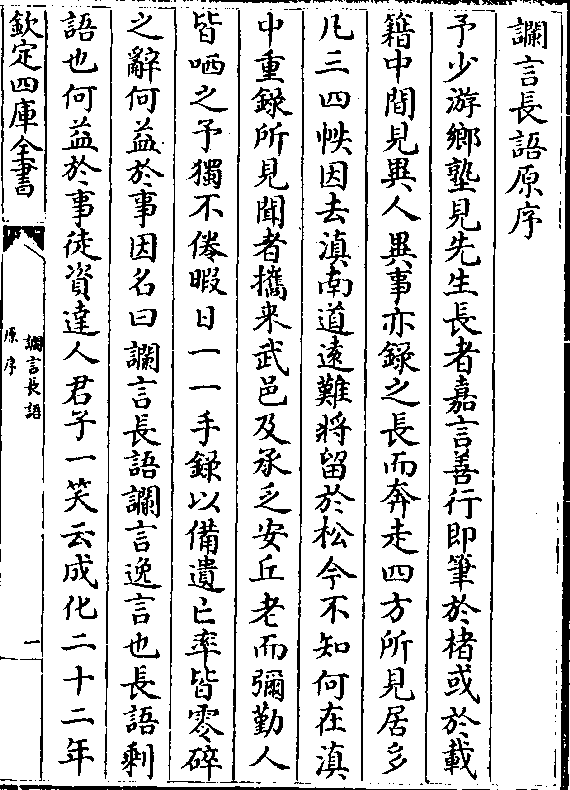 讕言長語原序
予少游鄉塾見先生長者嘉言善行即筆於楮或於載
籍中間見異人異事亦錄之長而奔走四方所見居多
凡三四帙因去滇南道遠難將留於松今不知何在滇
中重錄所見聞者攜來武邑及承乏安丘老而彌勤人
皆哂之予獨不倦暇日一一手錄以備遺亡率皆零碎
之辭何益於事因名曰讕言長語讕言逸言也長語剩
語也何益於事徒資達人君子一笑云成化二十二年
欽定四庫全書
讕言長語
原序
一